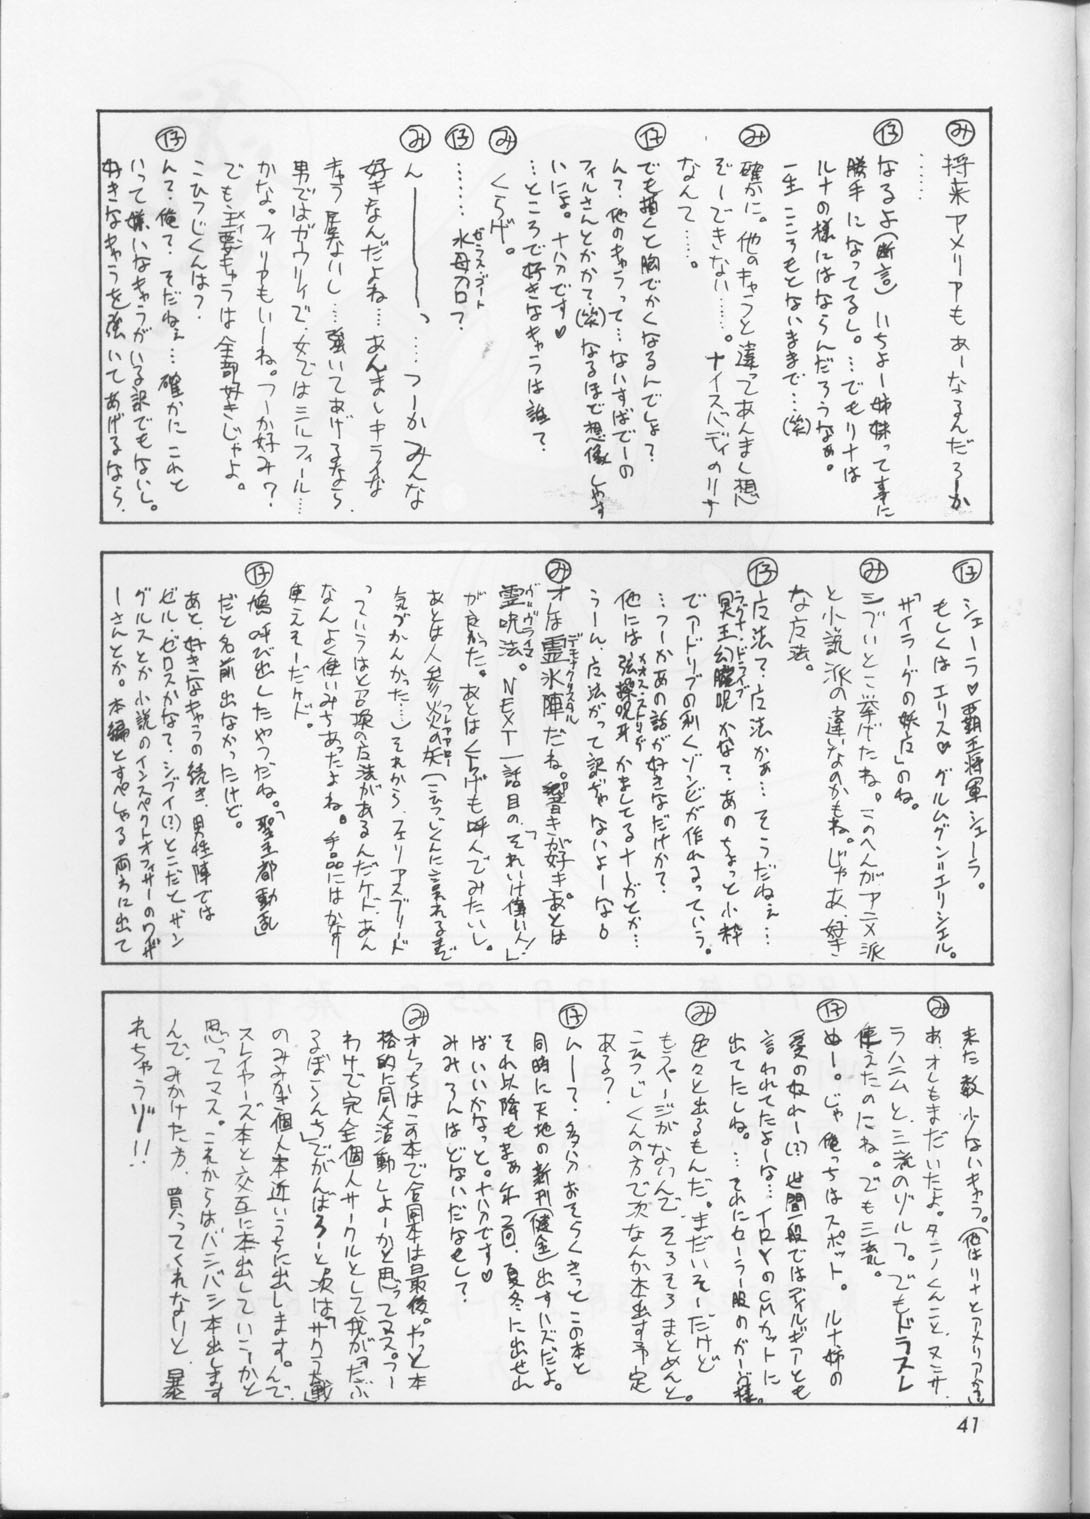 み 将来アメリアもあーなるんだろーか
……
仔 なるよ(断言)いちよー姉妹って事に
勝手になってるし。…でもリナは
ルナの様にはならんだろうなぁ。
一生こころもとないままで…(笑)
み 確かに。他のキャラと違ってあんまし想
ぞーできない……。ナイスバディのリナ
なんて……。
仔 でも描くと胸でかくなるんでしょ?
ん?他のキャラって…ないすばでーの
フィルさんとかかて(笑)なるほど想像しやす
いによ。十八才です♡
…ところで好きなキャラは誰?
み くらげ。
仔 ……水母刀ロ?
み んーーーっ……つーかみんな
好きなんだよね…あんましキライな
キャラ居ないし…強いてあげるなら
男ではガウリイで、女ではミルフィール…
かな。フィリアもいーね。つーか好み?
でも、主要キャラは全部好きじゃよ。
こひつじくんは?
仔 ん?俺?そだねぇ…確かにこれと
いって嫌いなキャラがいる訳でもないし。
好きなキャラを強いてあげるなら、
仔 シェーラ♡覇王将軍シェーラ。
もしくはエリス♡グルムグン=エリシエル。
「ザイラーグの妖兵」のね。
み シブいとこ挙げたね。このへんがアニメ派
と小説派の違いなのかもね。じゃあ、好き
な方法。
仔 方法?方法かぁ…そうだねぇ…
冥王幻朧呪かなて。あのちょっと小粋
でアドリブの利くゾンビが作れるっていう。
…つーかあの話が好きなだけか?
他には強操呪耳かましてるナーガとか…
うーん、方法がって訳ぢゃないよーな。
み オレは霊氷陣だね。響きが好き。あとは
霊呪法。NEXT一話目の、「それいけ偉い人!」
が良かった。あとはくらげも呼んでみたいし。
あとは人参火の矢(こひつじくんに言われるまで
気づかんかった…)それから、フェリアスブリード
っていうはと召換の方法があるんだケド、あん
なんよく使いみちあったよね。手品にはかなり
使えそーだケド。
仔 鳩呼び出したやつだね。「聖王都動乱」
だと名前出なかったけど。
あと、好きなキャラの続き、男性陣では
ゼル・ゼロスかなて。シブイ(?)とこだとザン
グルスとか小説のインスペクトオフィサーのワイザ
ーさんとか。本編とすぺしゃる両方に出て
来た数少ないキャラ。(他はリナとアメリア位)
み あ、オレもまだいたよ。タニノくんこと、ヌニサ
ラハニムと、三流のゾルフ。でもドラスレ
使えたのにね。でも三流。
仔 ぬー。じゃ俺っちはスポット。ルナ姉の
愛の奴れー(!?)世間一段ではディルギアとも
言われてたよーな…イロYのCMカットに
出てたしね。…それにセーラー服のガーヴ様。
み 色々と出るもんだ。まだいそーだけど
もうページがないんで、そろそろまとめんと。
こひつじくんの方で次なんか本出す予定
ある?
仔 んー?、多分おそらくきっとこの本と
同時に天地の新刊(健全)出すハズだよ。
それ以降もまぁ年2回、夏冬に出せん
ばいいかなっと。十八才です♡
みみろんはどないだなもし?
み オレっちはこの本で合同本は最後。やっと本
格的に同人活動しよーかと思ってマス。つー
わけで完全個人サークルとして我が「だぶ
るぼーらんち」でがんばろーと。次は「サクラ大戦」
のみみかき個人本近いうちに出します。んで、
スレイヤーズ本と交互に本出していこーかと
思ってマス。これからはバンバン本出します
んで、みかけた方、買ってくれないと、暴
れちゃうゾ!!
41